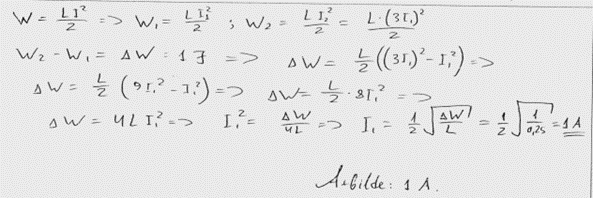 W = LI²/2 => W₁ = LI₁²/2 ; W₂ = LI₂²/2 = L·(3I₁)²/2
W₂ - W₁ = ΔW = 1 J => ΔW = L/2 ((3I₁)² - I₁²) =>
ΔW = L/2 (9I₁² - I₁²) => ΔW = L/2 · 8I₁² =>
ΔW = 4LI₁² => I₁² = ΔW/4L => I₁ = 1/2 √(ΔW/L) = 1/2 √(1/0,25) = 1 A
Atbilde: 1 A.